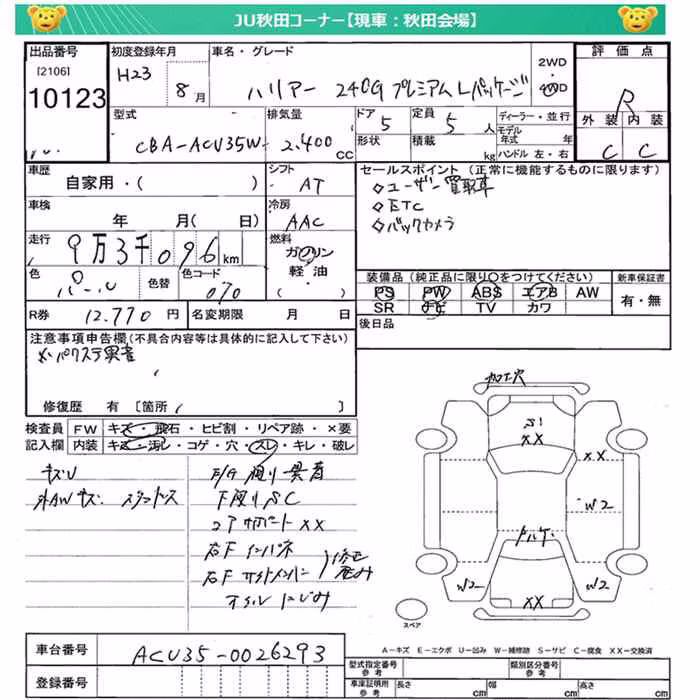 JU秋田コーナー【現車：秋田会場】
出品番号
[2106]
10123
初度登録年月
H23
8 月
車名・グレード
ハリアー 240G プレミアム Lパッケージ
2WD
4WD
評価点
R
外装 内装
C C
型式
CBA-ACU35W
排気量
2.400
CC
ドア
5
形状
定員
5 人
積載
kg
ディーラー・並行
モデル
年式 年
ハンドル 左・右
車歴
自家用・( )
シフト
AT
車検
年 月( 日)
冷房
AAC
走行
9万3千096 km
燃料
ガソリン
軽油
( )
色
パール
色替
色コード
070
R券 12.770 円
名変期限 月 日
セールスポイント（正常に機能するものに限ります）
◇ユーザー買取車
◇ETC
◇バックカメラ
装備品（純正品に限り○をつけてください）
PS PW ABS エアB AW
SR ナビ TV カワ
新車保証書
有・無
後日品
注意事項申告欄(不具合内容等は具体的に記入して下さい)
修復歴 有 [箇所 ]
検査員
記入欄
FW キズ・飛石・ヒビ割・リペア跡・×要
内装 キズ・汚レ・コゲ・穴・スレ・キレ・破レ
キズU
外AWキズ
コアサポートXX
右Fインハネ
右Fサイドメンバー
オイルにじみ
加工穴
S1
XX
XX
W2
W2
W2
XX
スペア
A－キズ E－エクボ U－凹み W－補修跡 S－サビ C－腐食 XX－交換済
車台番号
ACU35-0026293
登録番号
型式指定番号
参考
類別区分番号
参考
車庫証明用
参考
長さ cm
幅 cm
高さ cm